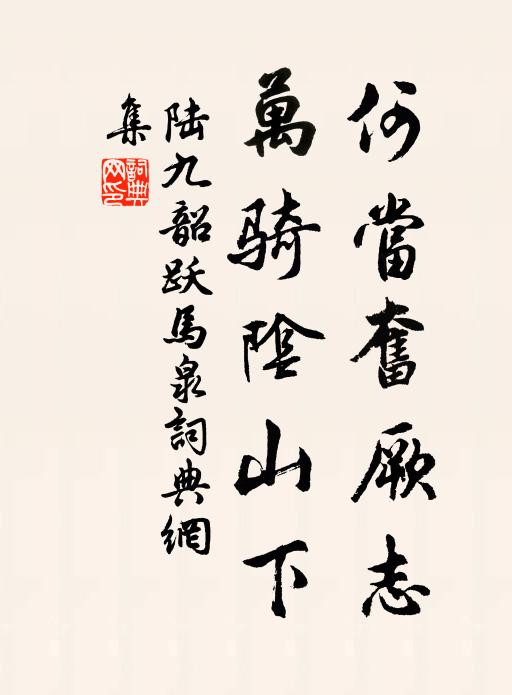 何當奮厥志
萬騎陰山下
陆九韶跃馬泉詞典網
集
詞典
网印